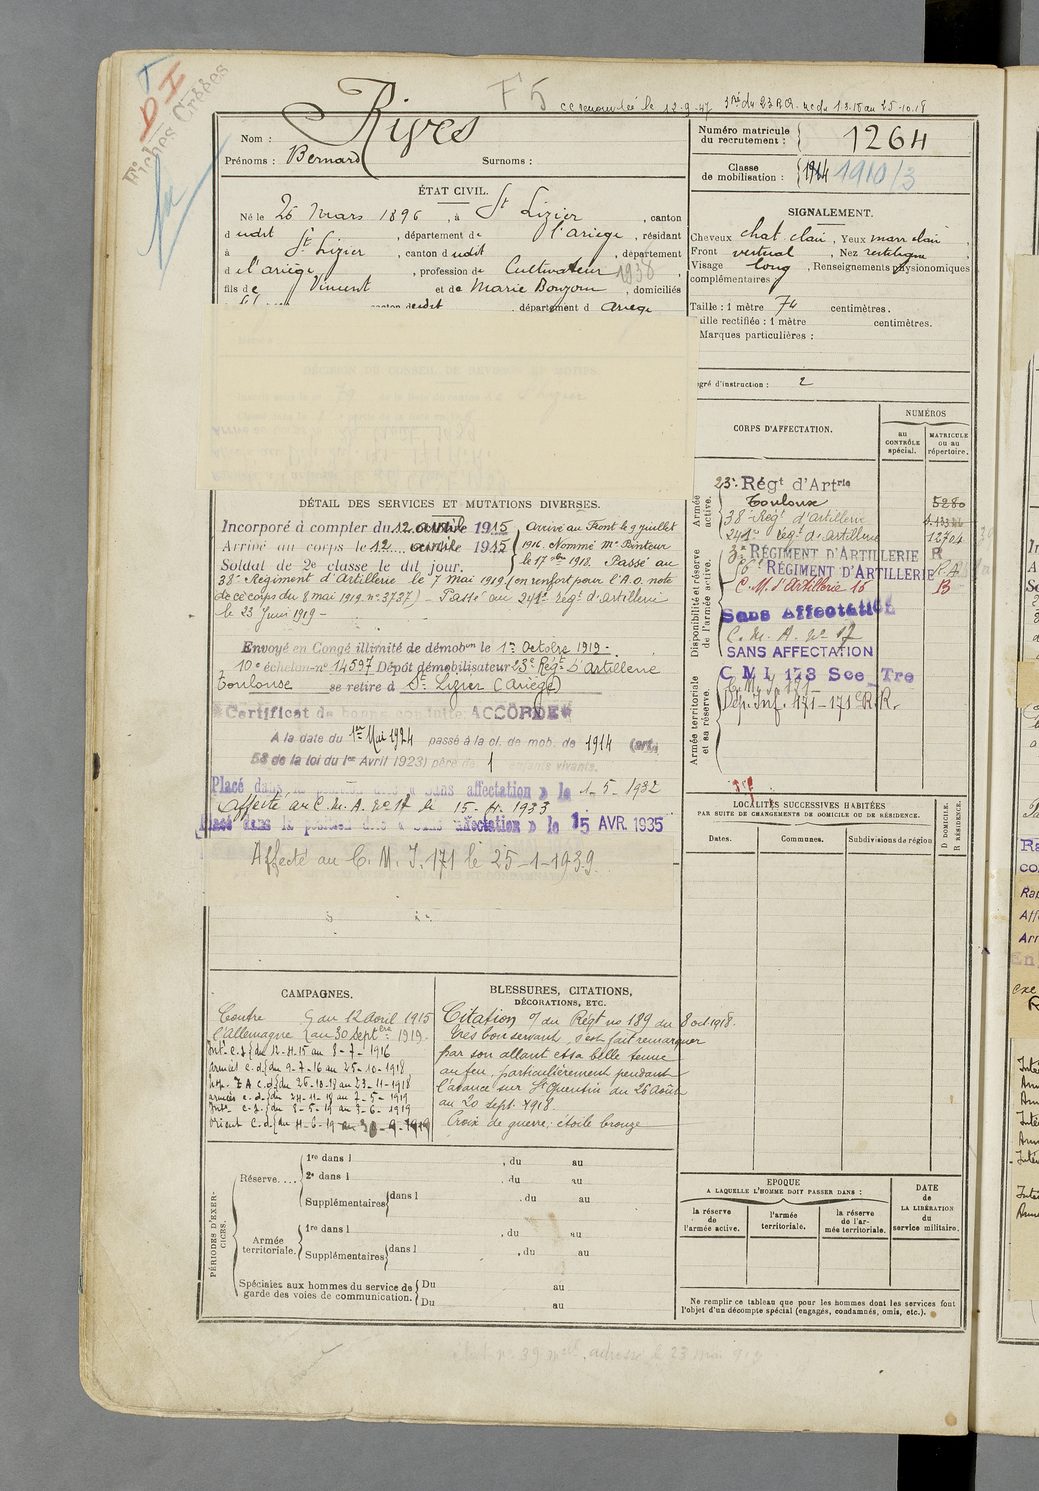 DI
Fiches Créées
F5
cc renouvelée le 12.9.47
Nom : Rives
Prénoms : Bernard Surnoms :
Numéro matricule
du recrutement : 1264
Classe
de mobilisation : 1914 1910/3
ÉTAT CIVIL.
Né le 26 Mars 1896, à St Lizier, canton
dudit, département de l'ariège, résidant
à St Lizier, canton dudit, département
de l'ariège, profession de Cultivateur 1938
fils de Vincent et de Marie Bouzom, domiciliés
canton dudit, département d Ariège
SIGNALEMENT.
Cheveux chat. clair, Yeux marr clair
Front vertical, Nez rectiligne
Visage long, Renseignements physionomiques
complémentaires
Taille : 1 mètre 74 centimètres.
Taille rectifiée : 1 mètre centimètres.
Marques particulières :
Degré d'instruction : 2
CORPS D'AFFECTATION.
NUMÉROS
au
CONTRÔLE
spécial.
MATRICULE
ou au
répertoire.
Armée
active.
23e Régt d'Artrie
Toulouse 5280
38e Régt d'artillerie
241e régt d'artillerie 12704
Disponibilité et réserve
de l'armée active.
3e RÉGIMENT D'ARTILLERIE R
RÉGIMENT D'ARTILLERIE R.A
C.M. d'Artillerie 16 B
Sans Affectation
C.M.A. no 17
SANS AFFECTATION
Armée territoriale
et sa réserve.
C M I 173 Sce Tre
C.M.I. 171
Dép. Inf. 171-171e R.R.
DÉTAIL DES SERVICES ET MUTATIONS DIVERSES.
Incorporé à compter du 12 avril 1915
Arrivé au corps le 12 avril 1915
Soldat de 2e classe le dit jour.
Arrivé au Front le 9 juillet
1916. Nommé Me Pointeur
le 17 1918. Passé au
38e Régiment d'Artillerie le 7 mai 1919 (en renfort pour l'A.O. note
de ce corps du 8 mai 1919 no 3737) - Passé au 241e régt d'artillerie
le 23 Juin 1919 -
Envoyé en Congé illimité de démobon le 1er Octobre 1919 -
10e échelon no 14597 Dépôt démobilisateur 23e Régt d'Artillerie
Toulouse se retire à St Lizier (Ariège)
Certificat de bonne conduite ACCORDÉ
A la date du 1er Mai 1924 passé à la cl. de mob. de 1914 (art.
58 de la loi du 1er Avril 1923) père de 1 enfants vivants.
Placé dans la position dite « Sans affectation » le 1-5-1932
Affecté au C.M.A. no 17 le 15.4.1933
Placé dans la position dite « Sans affectation » le 15 AVR. 1935
Affecté au C.M.I. 171 le 25-1-1939.
LOCALITÉS SUCCESSIVES HABITÉES
PAR SUITE DE CHANGEMENTS DE DOMICILE OU DE RÉSIDENCE.
Dates.
Communes.
Subdivisions de région
D DOMICILE.
R RÉSIDENCE.
CAMPAGNES.
Contre du 12 avril 1915
l'Allemagne au 30 septbre 1919.
Intr c.s. du 12-4-15 au 8-7-1916
armées c.d. du 9-7-16 au 25-10-1918
Int. Z A c.d. du 26-10-18 au 23-11-1918
armées c.d. du 24-11-18 au 7-5-1919
Intr c.s. du 8-5-19 au 3-6-1919
Orient c.d. du 4-6-19 au 30-9-1919
BLESSURES, CITATIONS,
DÉCORATIONS, ETC.
Citation o/ du Régt no 189 du 8 oct. 1918.
Très bon servant, s'est fait remarquer
par son allant et sa belle tenue
au feu, particulièrement pendant
l'avance sur St Quentin du 26 Août
au 20 sept. 1918.
Croix de guerre, étoile bronze
PÉRIODES D'EXERCICES.
Réserve....
1re dans l , du au
2e dans l , du au
Supplémentaires dans l , du au
Armée
territoriale.
1re dans l , du au
Supplémentaires dans l , du au
Spéciales aux hommes du service de
garde des voies de communication.
Du au
Du au
EPOQUE
A LAQUELLE L'HOMME DOIT PASSER DANS :
la réserve
de
l'armée active.
l'armée
territoriale.
la réserve
de l'armée territoriale.
DATE
de
LA LIBÉRATION
du
service militaire.
Ne remplir ce tableau que pour les hommes dont les services font
l'objet d'un décompte spécial (engagés, condamnés, omis, etc.).